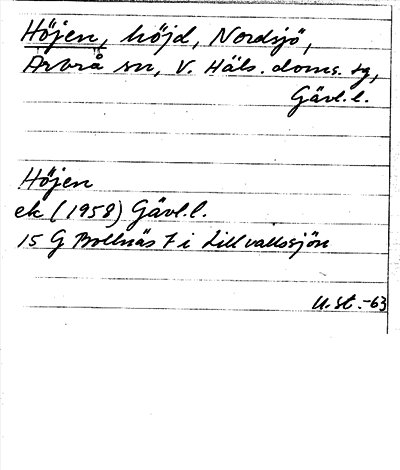 Höjen, höjd, Nordsjö,
Arbrå sn, V. Häls. doms. sg,
Gävl.l.
Höjen
ek (1958) Gävl.l.
15 G Bollnäs 7 i Lillvallssjön
U.st.-63